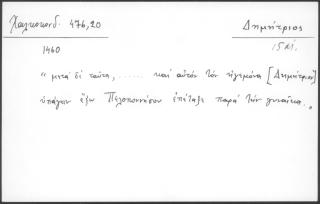 Χαλκοκονδ. 476,20 Δημήτριος
1460 15 αἰ.
"μετὰ δὲ ταῦτα, ...... καὶ αὐτὸν τὸν ἡγεμόνα [Δημήτριον]
ὑπάγειν ἔξω Πελοποννήσου ἐπέταξε παρὰ τὴν γυναῖκα."